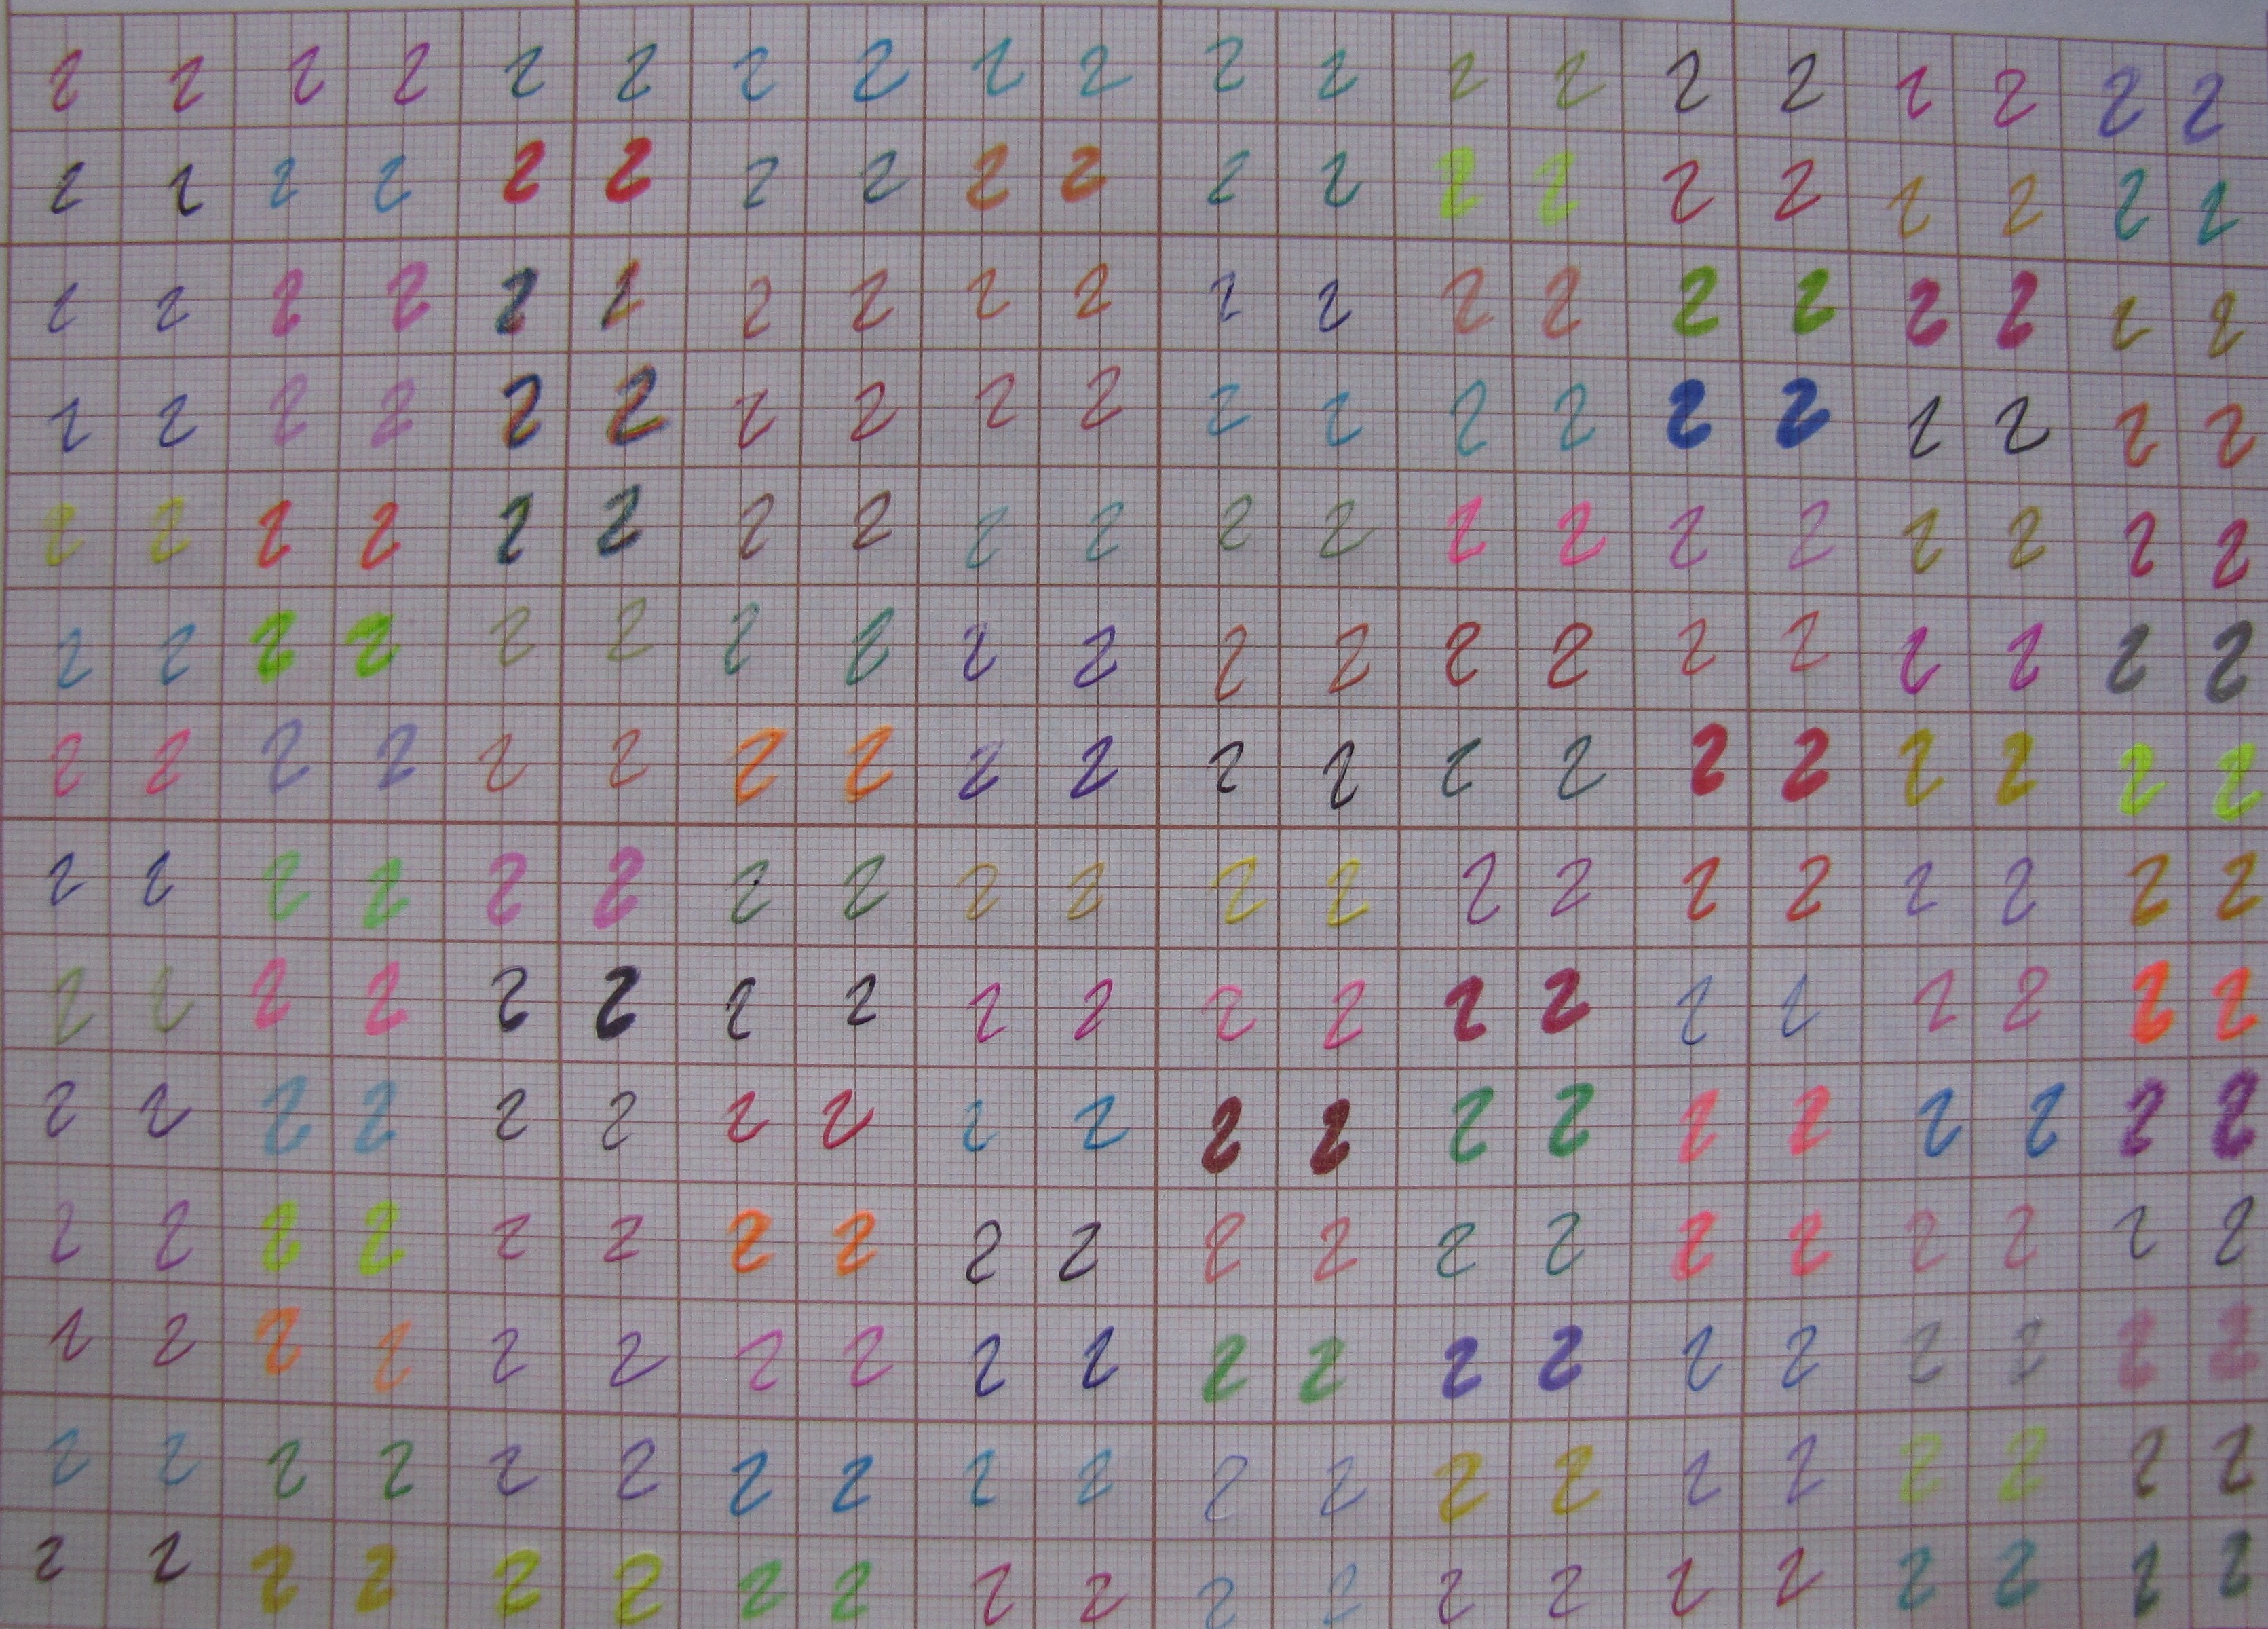 2 2 2 2 2 2 2 2 2 2 2 2 2 2 2 2 2 2 2 2
2 2 2 2 2 2 2 2 2 2 2 2 2 2 2 2 2 2 2 2
2 2 2 2 2 2 2 2 2 2 2 2 2 2 2 2 2 2 2 2
2 2 2 2 2 2 2 2 2 2 2 2 2 2 2 2 2 2 2 2
2 2 2 2 2 2 2 2 2 2 2 2 2 2 2 2 2 2 2 2
2 2 2 2 2 2 2 2 2 2 2 2 2 2 2 2 2 2 2 2
2 2 2 2 2 2 2 2 2 2 2 2 2 2 2 2 2 2 2 2
2 2 2 2 2 2 2 2 2 2 2 2 2 2 2 2 2 2 2 2
2 2 2 2 2 2 2 2 2 2 2 2 2 2 2 2 2 2 2 2
2 2 2 2 2 2 2 2 2 2 2 2 2 2 2 2 2 2 2 2
2 2 2 2 2 2 2 2 2 2 2 2 2 2 2 2 2 2 2 2
2 2 2 2 2 2 2 2 2 2 2 2 2 2 2 2 2 2 2 2
2 2 2 2 2 2 2 2 2 2 2 2 2 2 2 2 2 2 2 2
2 2 2 2 2 2 2 2 2 2 2 2 2 2 2 2 2 2 2 2